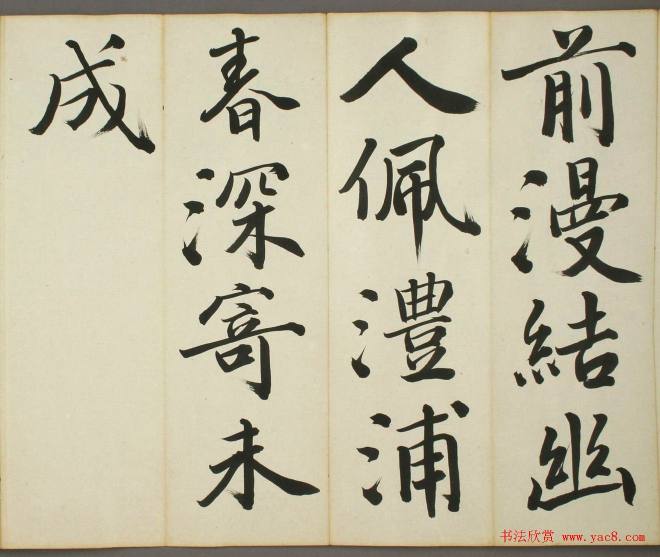 前漫結幽
人佩澧浦
春深寄未
成
书法欣赏 www.yac8.com